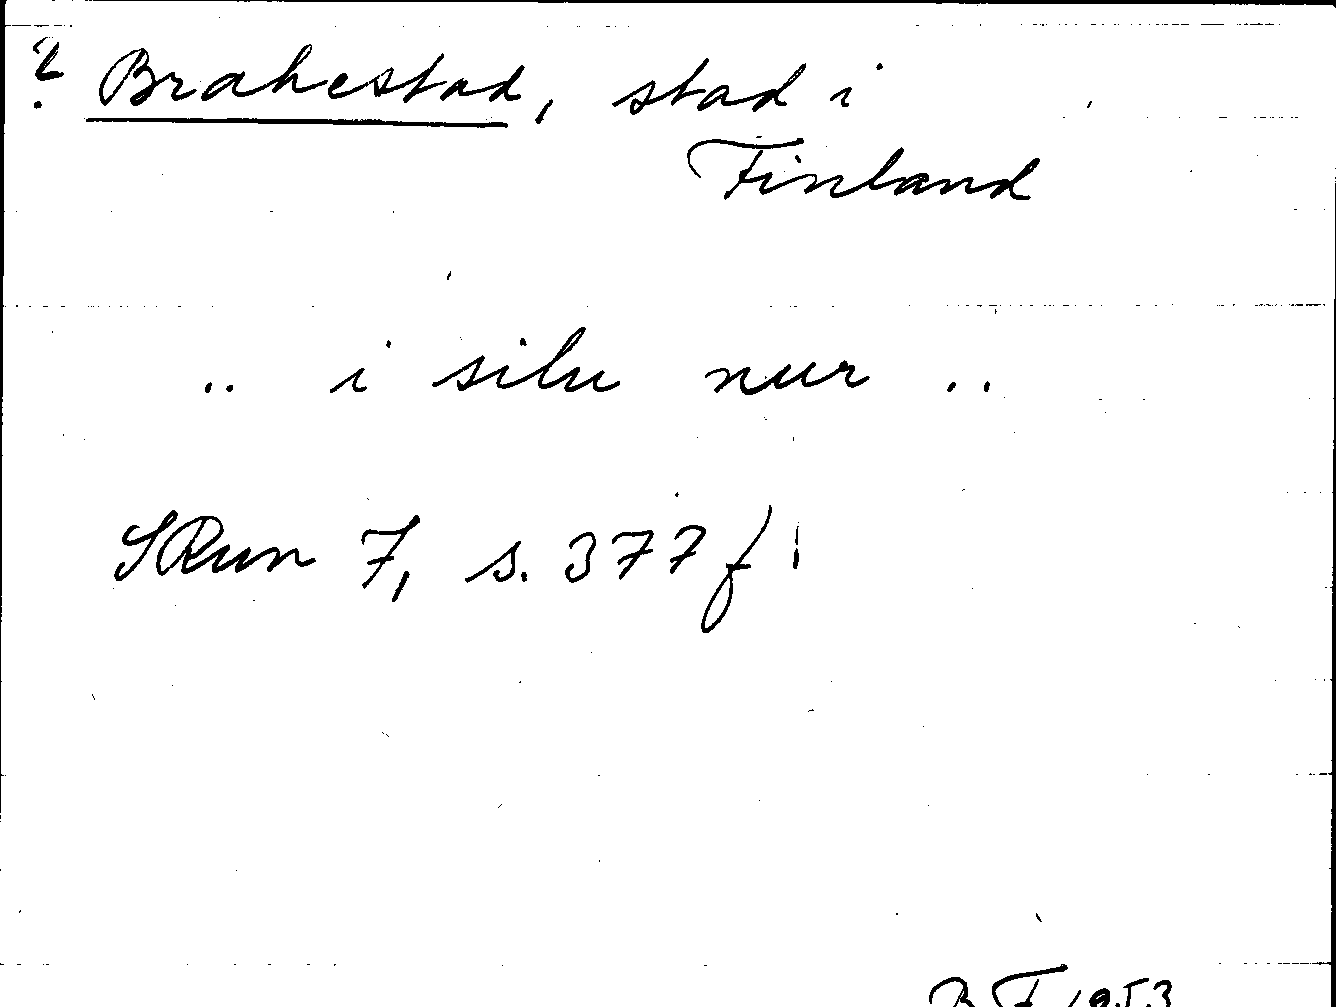 ? Brahestad, stad i
Finland
.. i silu nur ..
SRun 7, s. 377 f
B F 1953